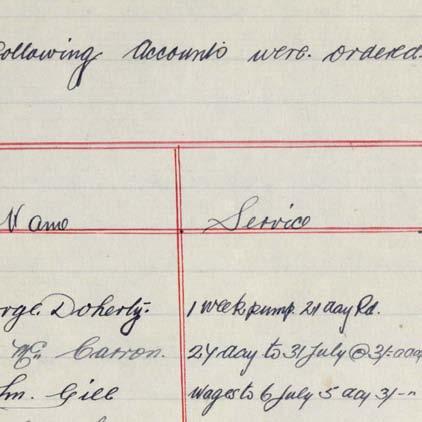 ollowing Accounts were ordered
Name Service
rge Doherty. 1 week pump. 21 day Rd.
Mc Carron. 24 day to 31 July @ 3/-
hn. Gill wages to 6 July 5 day 3/-